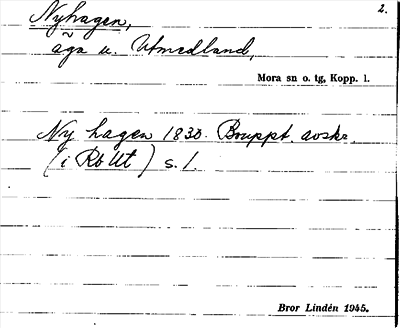 2.
Nyhagen,
äga u. Utmedland,
Mora sn o. tg, Kopp. l.
Ny hagen 1830. Bruppt. avskr.
(i Rb Ut) s. 1.
Bror Lindén 1945.